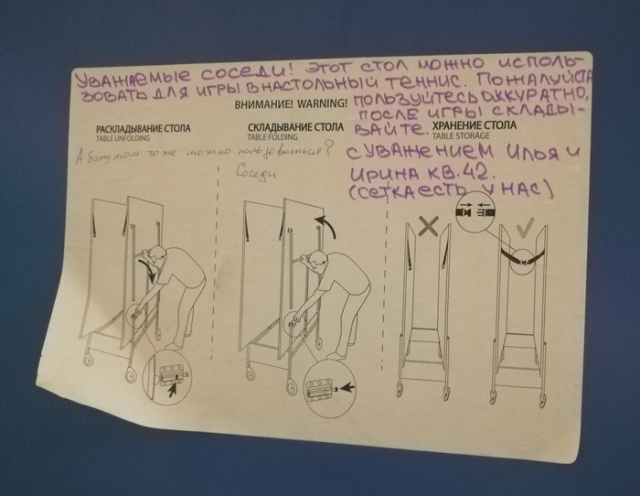 Уважаемые соседи! Этот стол можно исполь-
зовать для игры в настольный теннис. Пожалуйста
ВНИМАНИЕ! WARNING! пользуйтесь аккуратно,
после игры склады-
вайте.
РАСКЛАДЫВАНИЕ СТОЛА
TABLE UNFOLDING
СКЛАДЫВАНИЕ СТОЛА
TABLE FOLDING
ХРАНЕНИЕ СТОЛА
TABLE STORAGE
А батутом тоже можно пользоваться?
Соседи
С уважением Илья и
Ирина кв. 42.
(сетка есть у нас)